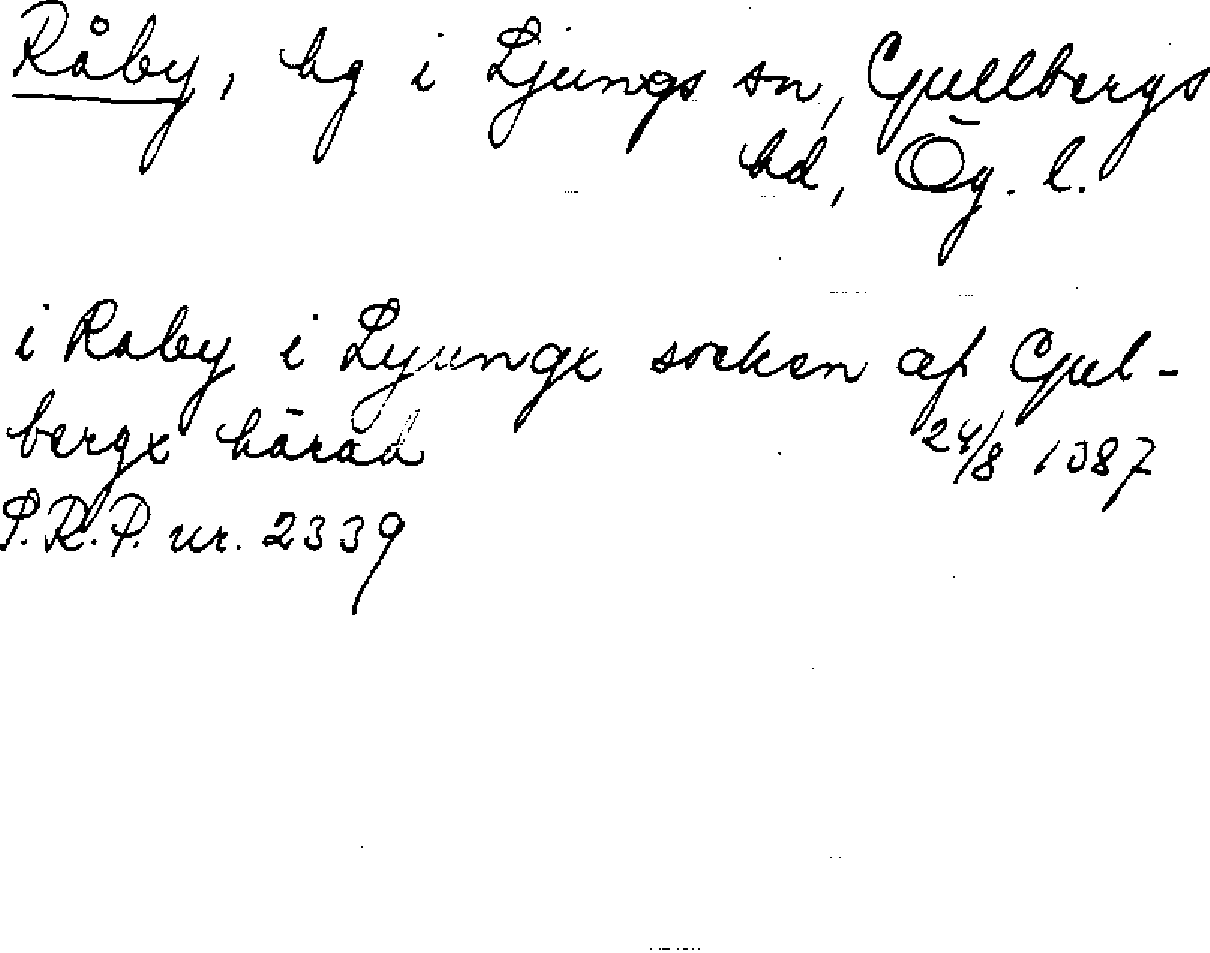 Råby, hg i Ljungs sn, Gullbergs
hd, Ög. l.
i Raby i Lyungx socken af Gul-
bergx härad 24/8 1387
S.R.P. nr. 2339